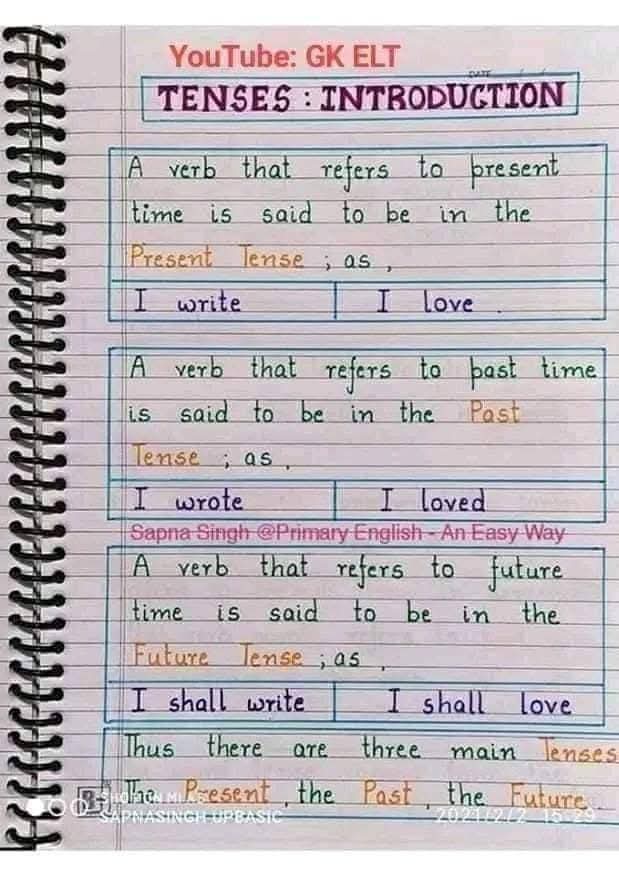 YouTube: GK ELT
DATE
TENSES : INTRODUCTION
A verb that refers to present
time is said to be in the
Present Tense ; as ,
I write I love .
A verb that refers to past time
is said to be in the Past
Tense ; as ,
I wrote I loved
Sapna Singh @Primary English - An Easy Way
A verb that refers to future
time is said to be in the
Future Tense ; as ,
I shall write I shall love
Thus there are three main Tenses
The Present , the Past , the Future .
SHOT ON MI A3
SAPNASINGH UPBASIC 2021/2/2 15:29